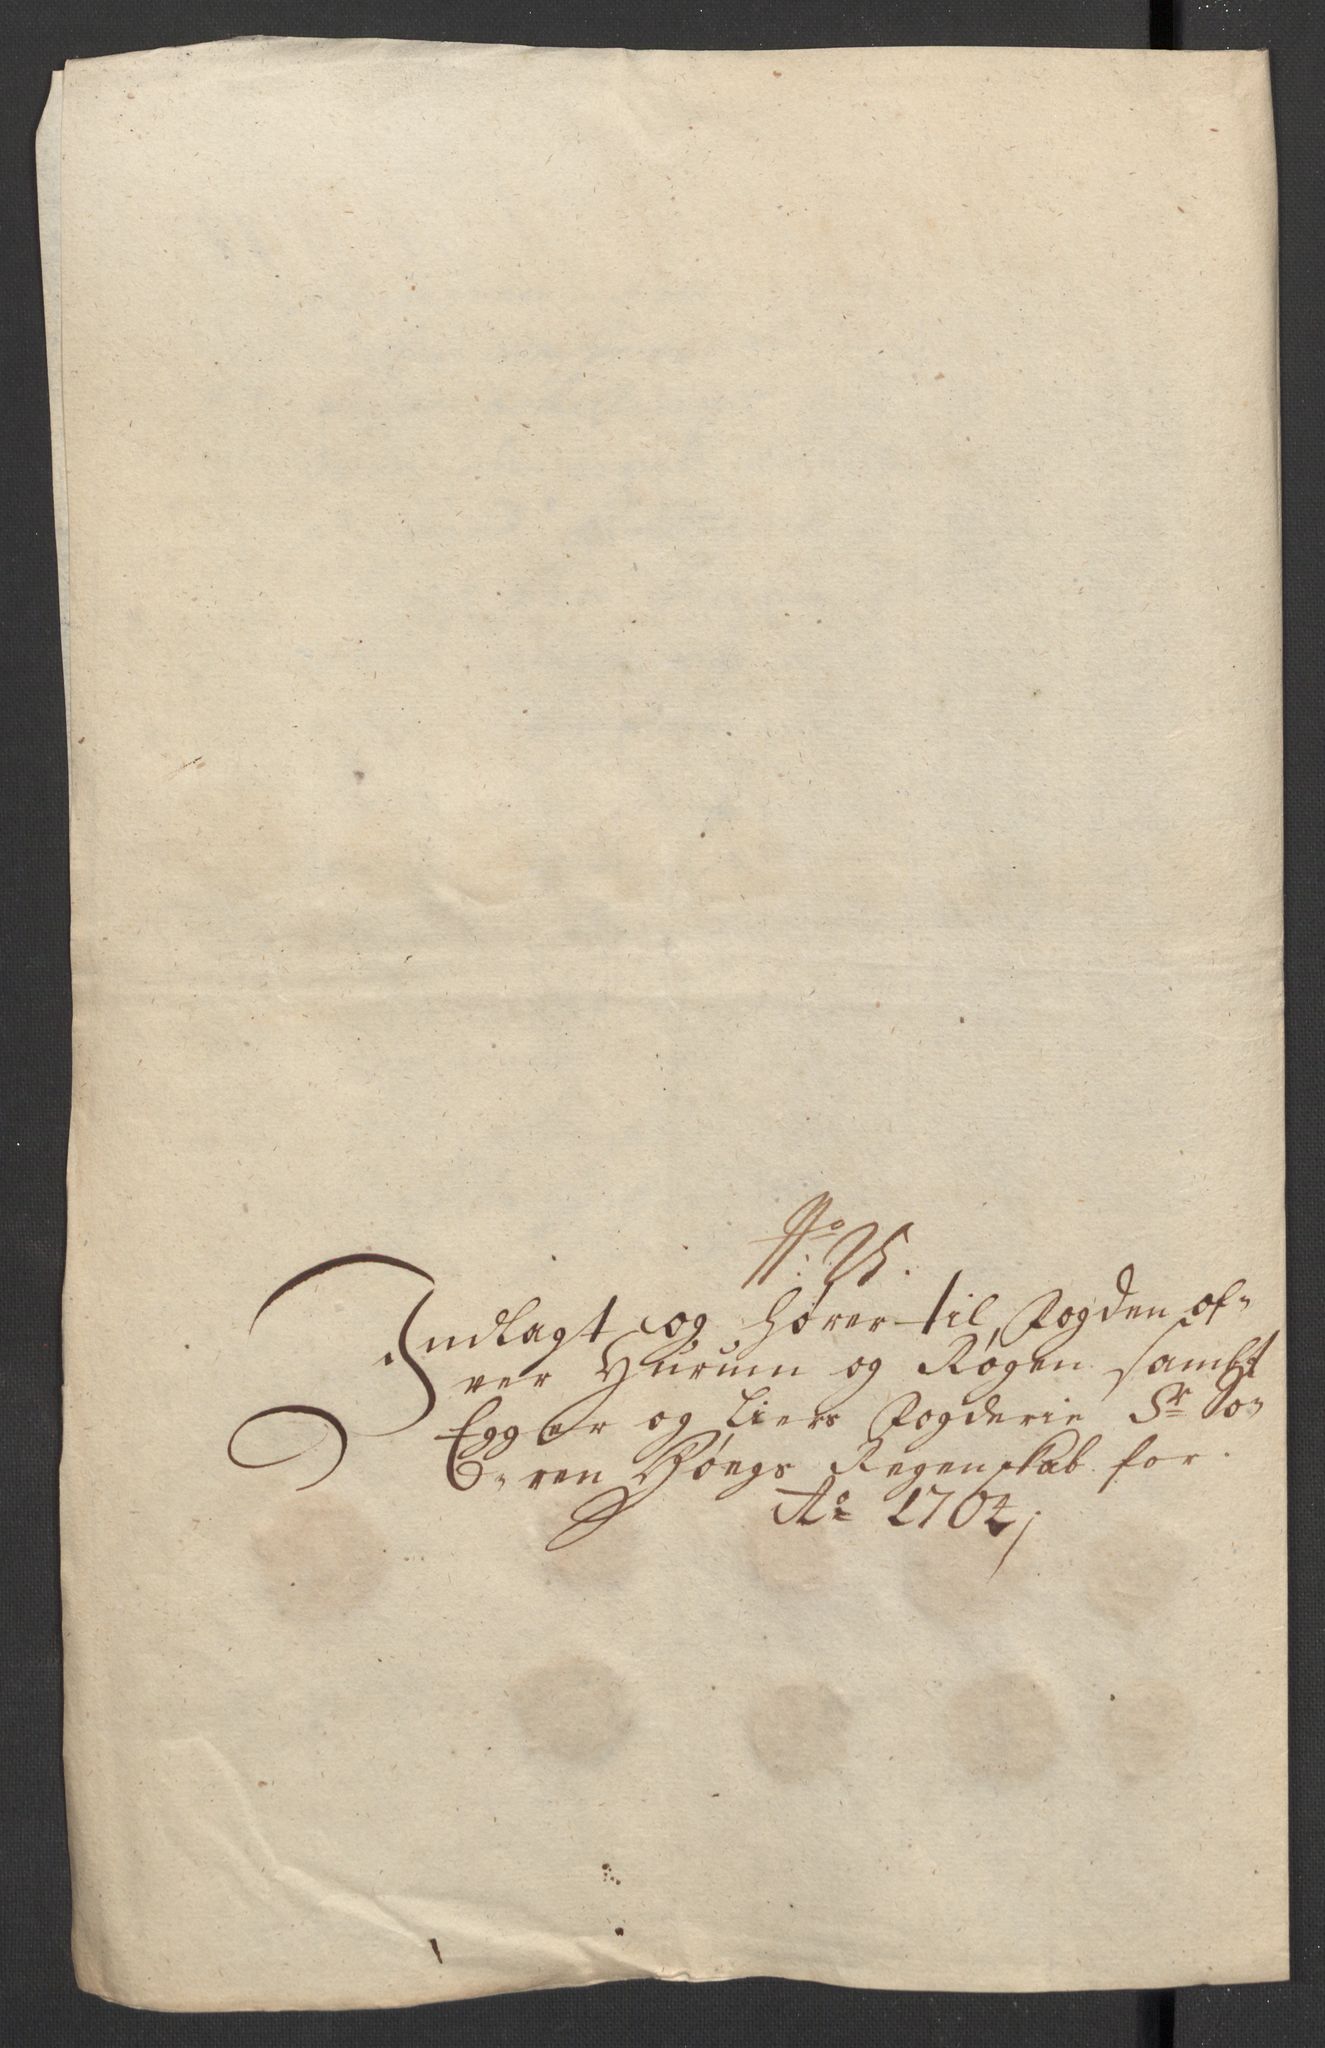 No: U.
Indlagt og hører til, Fogden of-
ver Hurum og Røgen sambt
Egger og Liers Fogderie Sr So-
ren Bøngs Regenskab for.
Ao 1704,